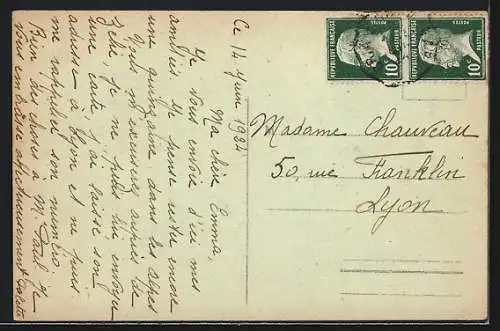 Ce 14 Juin 1924
Ma chère Emma,
Je vous envoie d'ici mes
amitiés je pense rester encore
une quinzaine dans les alpes
Vous m'excuserez auprès de
je ne puis lui envoyer
une carte, j'ai laissé son
adresse à Lyon et ne puis
me rappeler son numéro
Bien des choses à M. Paul Je
vous embrasse affectueusement
Madame Chauveau
50, rue Franklin
Lyon
REPUBLIQUE FRANÇAISE
POSTES
PASTEUR
10c
REPUBLIQUE FRANÇAISE
POSTES
PASTEUR
10c